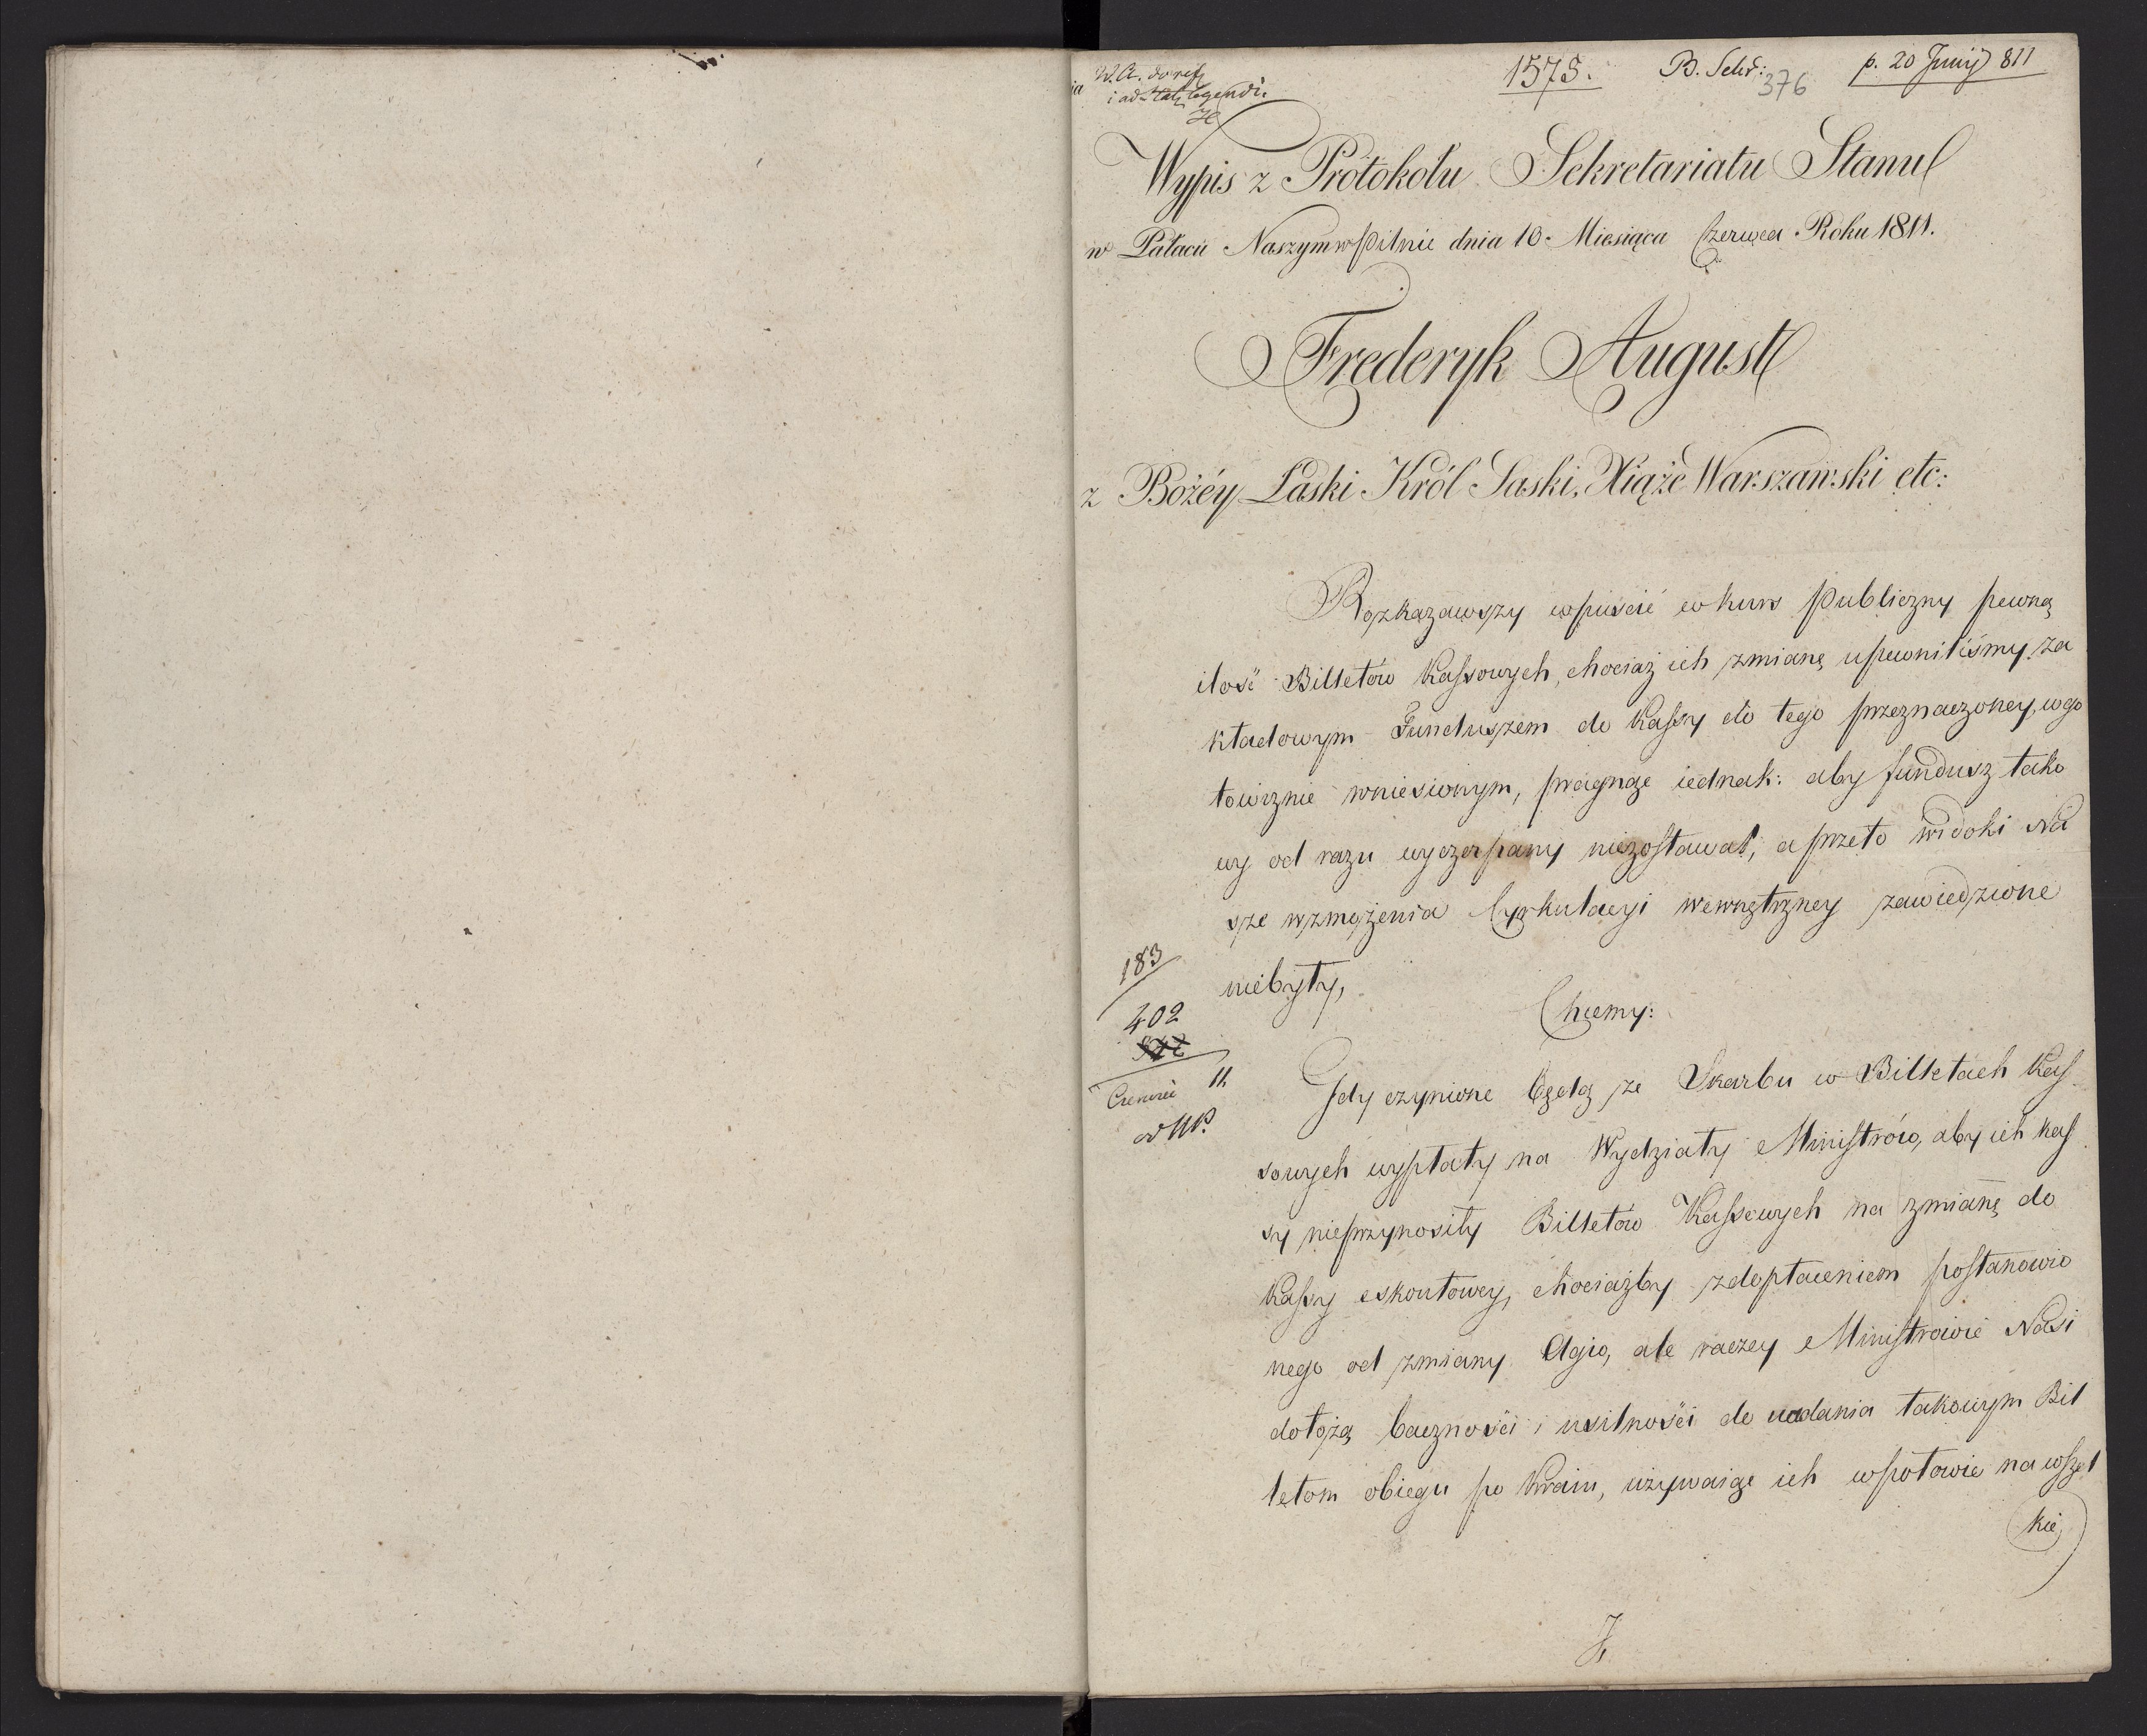 1575. B. Sekr: 376 p. 20 Junij 811
Wypis z Protokołu Sekretariatu Stanu
w Pałacu Naszym w Pilnie dnia 10. Miesiąca Czerwca Roku 1811.
Frederyk August
z Bożéy Łaski Król Saski, Xiąże Warszawski etc:
Rozkazawszy wpuścić w kurs publiczny pewną
ilość Billetów Kassowych, chociaż ich zmianę upewniliśmy za
kładowym Funduszem do Kassy do tego przeznaczoney, w go
towiznie wniesionym, pragnąc iednak: aby fundusz tako
wy od razu wyczerpany niezostawał, a przeto widoki Na
sze wzmożenia Cyrkulacyi wewnętrzney zawiedzione
niebyły,
Chcemy:
183
402
Czerwiec 11.
ad MP.
Gdy czynione będą ze Skarbu w Billetach Kas
sowych wypłaty na Wydziały Ministrów, aby ich kas
sy nieprzynosiły Billetów Kassowych na zmianę do
Kassy eskontowey, chociażby z dopłaceniem postanowio
nego od zmiany Agio, ale raczey Ministrowie Nasi
dołożą baczności i usilności do nadania takowym Bil
letom obiegu po Kraiu, używaiąc ich w połowie na wszel
kie